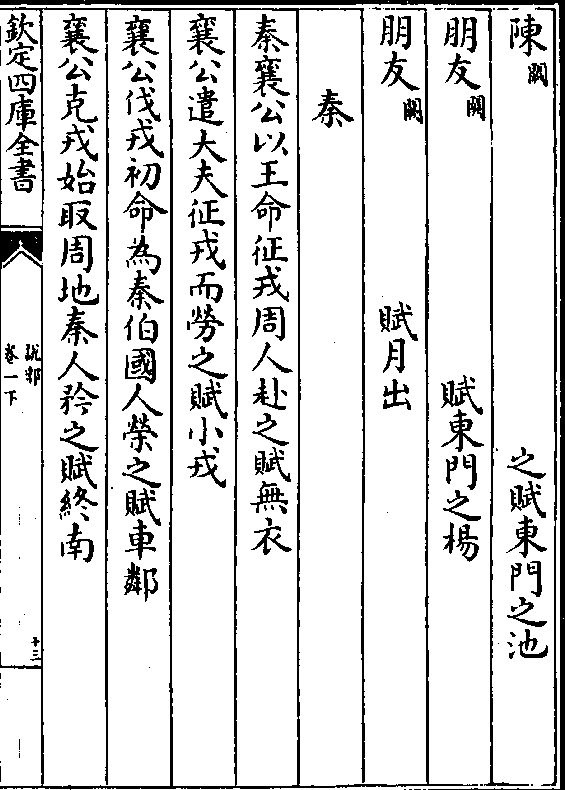 陳闕　　　　　之賦東門之池
朋友闕　　　　　賦東門之楊
朋友闕　　　　　賦月出
秦
秦襄公以王命征戎周人赴之賦無衣
襄公遣大夫征戎而勞之賦小戎
襄公伐戎初命為秦伯國人榮之賦車鄰
襄公克戎始取周地秦人矜之賦終南
欽定四庫全書
說郛
卷一下
十三